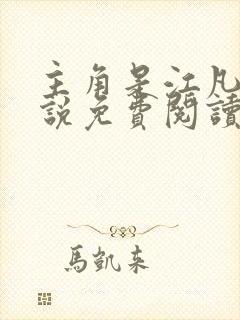 主角是江凡
說免費閱讀
馬凱来